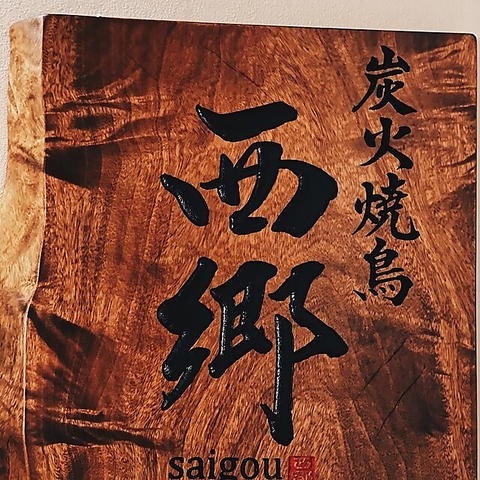 炭火焼鳥
西郷
saigou